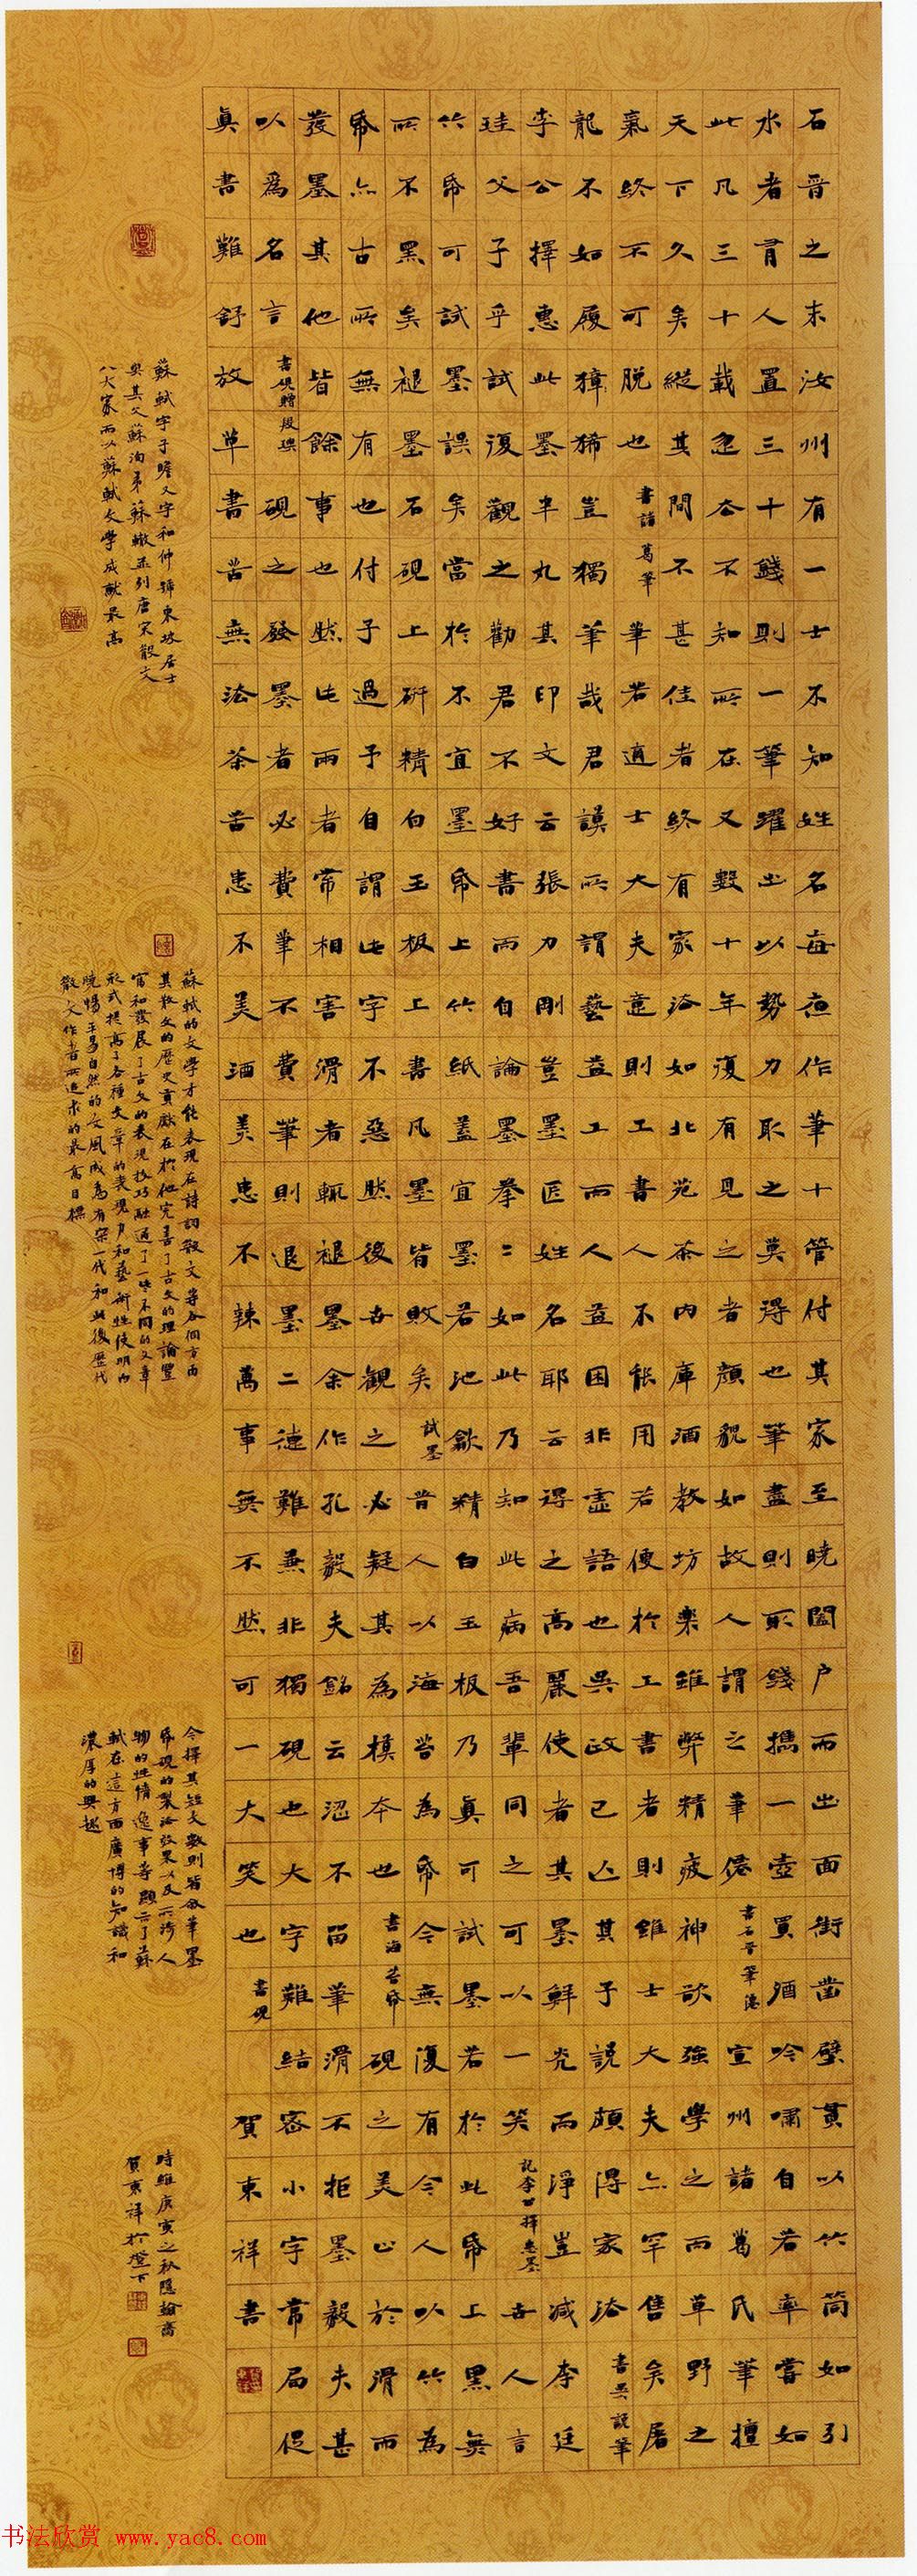 石晉之末汝州有一士不知姓名每夜作筆十管付其家至曉闔户而出面街鑿壁貫以竹筒如引
水者有人置三十錢則一筆躍出以勢力取之莫得也筆盡則取錢攜一壺買酒吟嘯自若率嘗如
此凡三十載忽去不知所在又數十年復有見之者顏貌如故人謂之筆僊 書石晉筆僊 宣州諸葛氏筆擅
天下久矣縱其間不甚佳者終有家法如北苑茶內庫酒教坊樂雖弊精疲神欲強學之而草野之
氣終不可脫也 書諸葛筆 筆若適士大夫意則工書人不能用若便於工書者則雖士大夫亦罕售矣屠
龍不如履獐狶豈獨筆哉君謨所謂藝益工而人益困非虛語也吳政已亡其子說頗得家法 書吳說筆
李公擇惠此墨半丸其印文云張力剛豈墨匠姓名耶云得之高麗使者其墨鮮光而淨豈減李廷
珪父子乎試復觀之勸君不好書而自論墨拳二如此乃知此病吾輩同之可以一笑 記李公擇惠墨 世人言
竹帋可試墨誤矣當於不宜墨帋上竹紙蓋宜墨若池歙精白玉板乃真可試墨若於此帋上黑無
所不黑矣褪墨石硯上研精白玉板上書凡墨皆敗矣 試墨 昔人以海苔為帋今無復有今人以竹為
帋亦古所無有也付子過予自謂此字不惡然後世觀之必疑其為模本也 書海苔帋 硯之美止於滑而
發墨其他皆餘事也然此兩者常相害滑者輒褪墨余作孔毅夫銘云澀不留筆滑不拒墨毅夫甚
以為名言 書硯贈段璵 硯之發墨者必費筆不費筆則退墨二德難兼非獨硯也大字難結密小字常局促
真書難舒放草書苦無法茶苦患不美酒美患不辣萬事無不然可一大笑也 書硯 賀東祥書
蘇軾字子瞻又字和仲號東坡居士
與其父蘇洵弟蘇轍並列唐宋散文
八大家而以蘇軾文學成就最高
蘇軾的文學才能表現在詩詞散文等各個方面
其散文的歷史貢獻在於他完善了古文的理論豐
富和發展了古文的表現技巧融通了一些不同的文章
形式提高了各種文章的表現力和藝術性使明內
曉暢平易自然的文風成為有宋一代和此後歷代
散文作者所追求的最高目標
今擇其短文數則皆敘筆墨
帋硯的製法效果以及所涉人
物的性情逸事等顯示了蘇
軾在這方面廣博的知識和
濃厚的興趣
時維庚寅之秋隱翰齋
賀東祥於燈下
书法欣赏 www.yac8.com